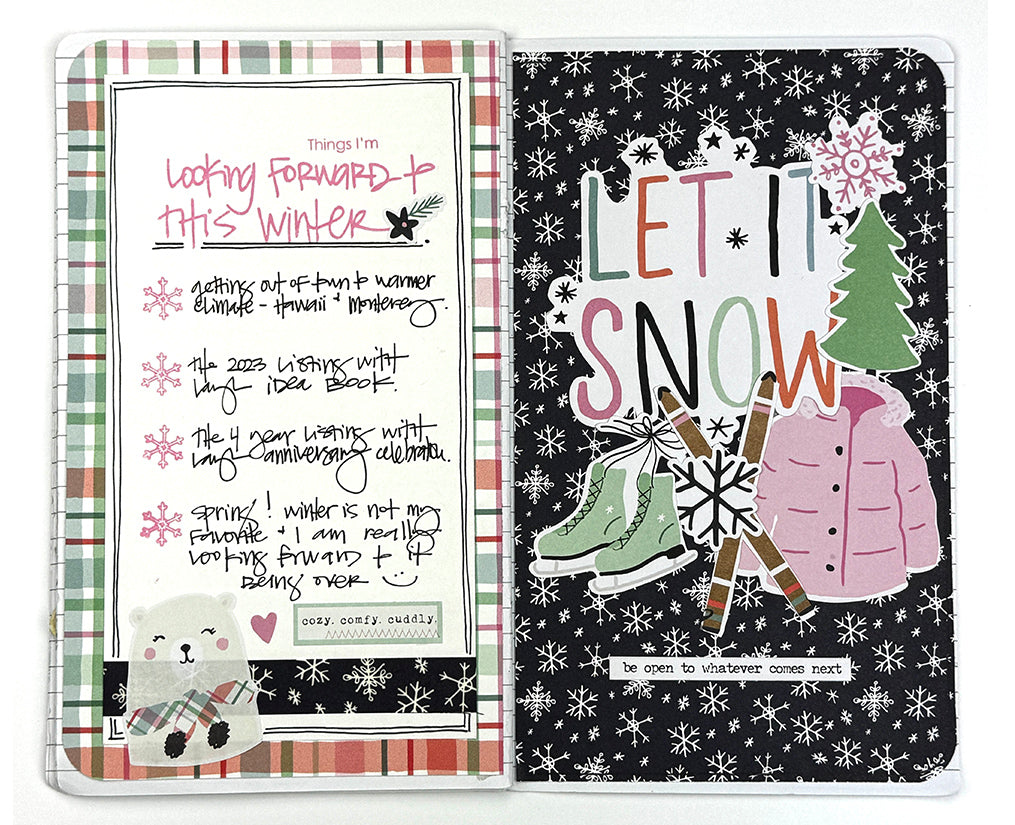 Things I'm
Looking Forward to
this winter
getting out of town to warmer
climate - Hawaii + Monterey.
the 2023 Listing with
Laugh idea Book.
the 4 year Listing with
Laugh anniversary celebration.
spring! winter is not my
Favorite + I am really
Looking forward to it
being over
cozy. comfy. cuddly.
LET IT
SNOW
be open to whatever comes next